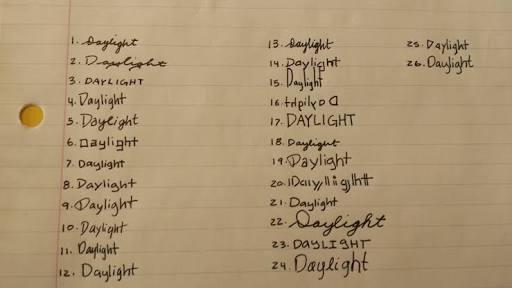 1. Daylight
2. Daylight
3. DAYLIGHT
4. Daylight
5. Daylight
6. Daylight
7. Daylight
8. Daylight
9. Daylight
10. Daylight
11. Daylight
12. Daylight
13. Daylight
14. Daylight
15. Daylight
16. thgilyaD
17. DAYLIGHT
18. Daylight
19. Daylight
20. Daylight
21. Daylight
22. Daylight
23. DAYLIGHT
24. Daylight
25. Daylight
26. Daylight